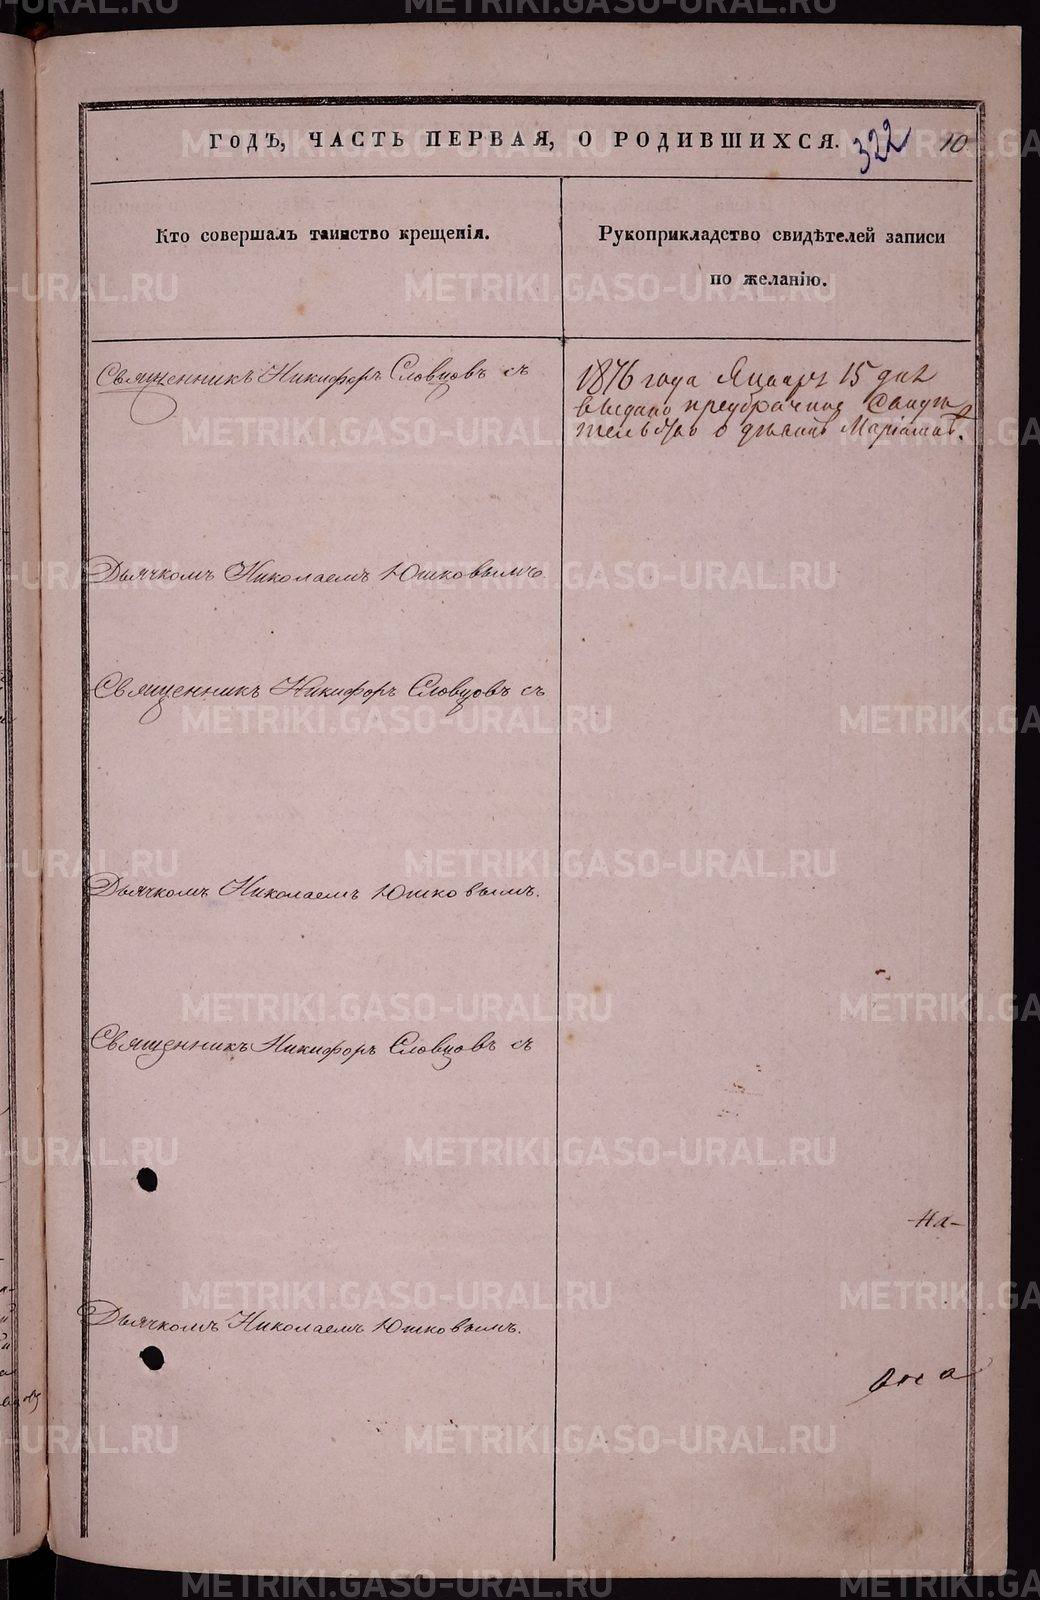 ГОДЪ, ЧАСТЬ ПЕРВАЯ, О РОДИВШИХСЯ. 322 10
Кто совершалъ таинство крещенія.
Рукоприкладство свидѣтелей записи
по желанію.
Священникъ Никифоръ Словцовъ съ
1876 года Января 15 дня
выдано предбрачное Свидѣ
тельство о дѣвицѣ
Дьячкомъ Николаемъ Юшковымъ
Священникъ Никифоръ Словцовъ съ
Дьячкомъ Николаемъ Юшковымъ.
Священникъ Никифоръ Словцовъ съ
-на-
Дьячкомъ Николаемъ Юшковымъ.
METRIKI.GASO-URAL.RU